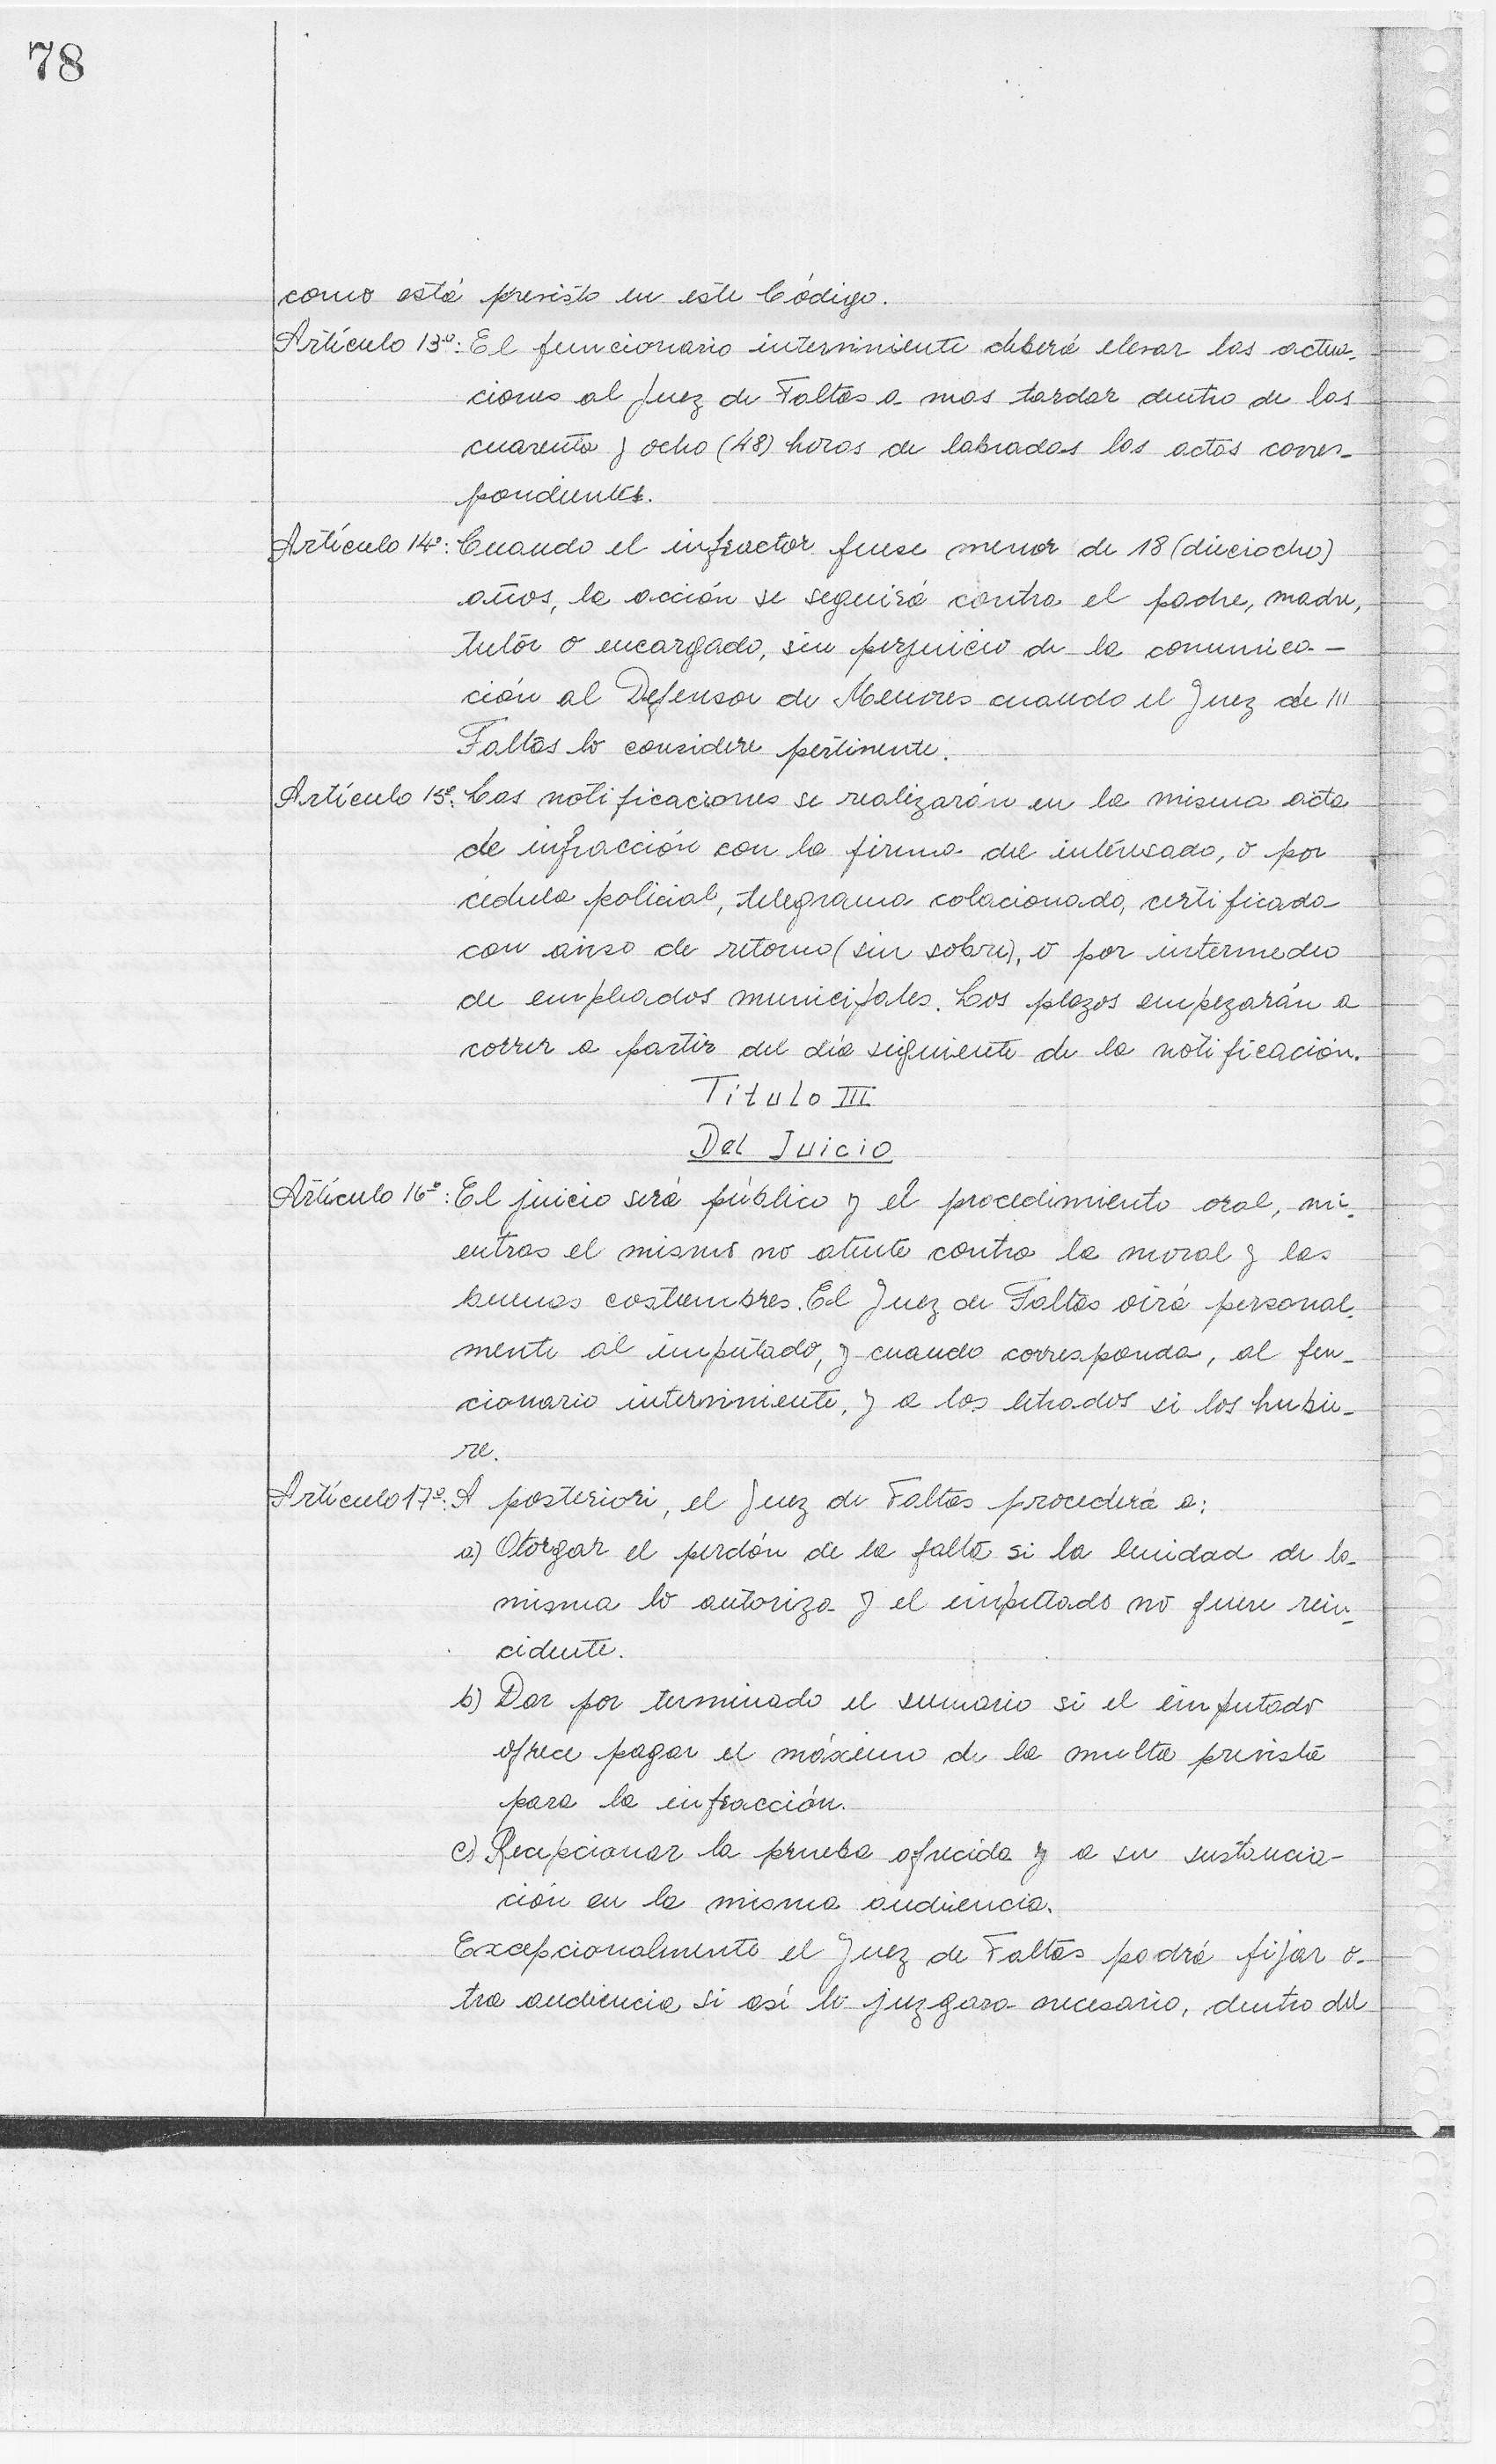 78
como está previsto en este Código.
Artículo 13º: El funcionario interviniente deberá elevar las actua-
ciones al Juez de Faltas a mas tardar dentro de las
cuarenta y ocho (48) horas de labradas las actas corres-
pondientes.
Artículo 14º: Cuando el infractor fuese menor de 18 (dieciocho)
años, la acción se seguirá contra el padre, madre,
tutor o encargado, sin perjuicio de la comunica-
ción al Defensor de Menores cuando el Juez de ///
Faltas lo considere pertinente.
Artículo 15º: Las notificaciones se realizarán en la misma acta
de infracción con la firma del interesado, o por
cédula policial, telegrama colacionado, certificada
con aviso de retorno (sin sobre), o por intermedio
de empleados municipales. Los plazos empezarán a
correr a partir del día siguiente de la notificación.
Titulo III
Del Juicio
Artículo 16º: El juicio será público y el procedimiento oral, mi-
entras el mismo no atente contra la moral y las
buenas costumbres. El Juez de Faltas oirá personal-
mente al imputado, y cuando corresponda, al fun-
cionario interviniente, y a los letrados si los hubie-
re.
Artículo 17º: A posteriori, el Juez de Faltas procederá a:
a) Otorgar el perdón de la falta si la lenidad de la
misma lo autoriza y el imputado no fuere rein-
cidente.
b) Dar por terminado el sumario si el imputado
ofrece pagar el máximo de la multa prevista
para la infracción.
c) Recepcionar la prueba ofrecida y a su sustancia-
ción en la misma audiencia.
Excepcionalmente el Juez de Faltas podrá fijar o-
tra audiencia si así lo juzgara necesario, dentro del